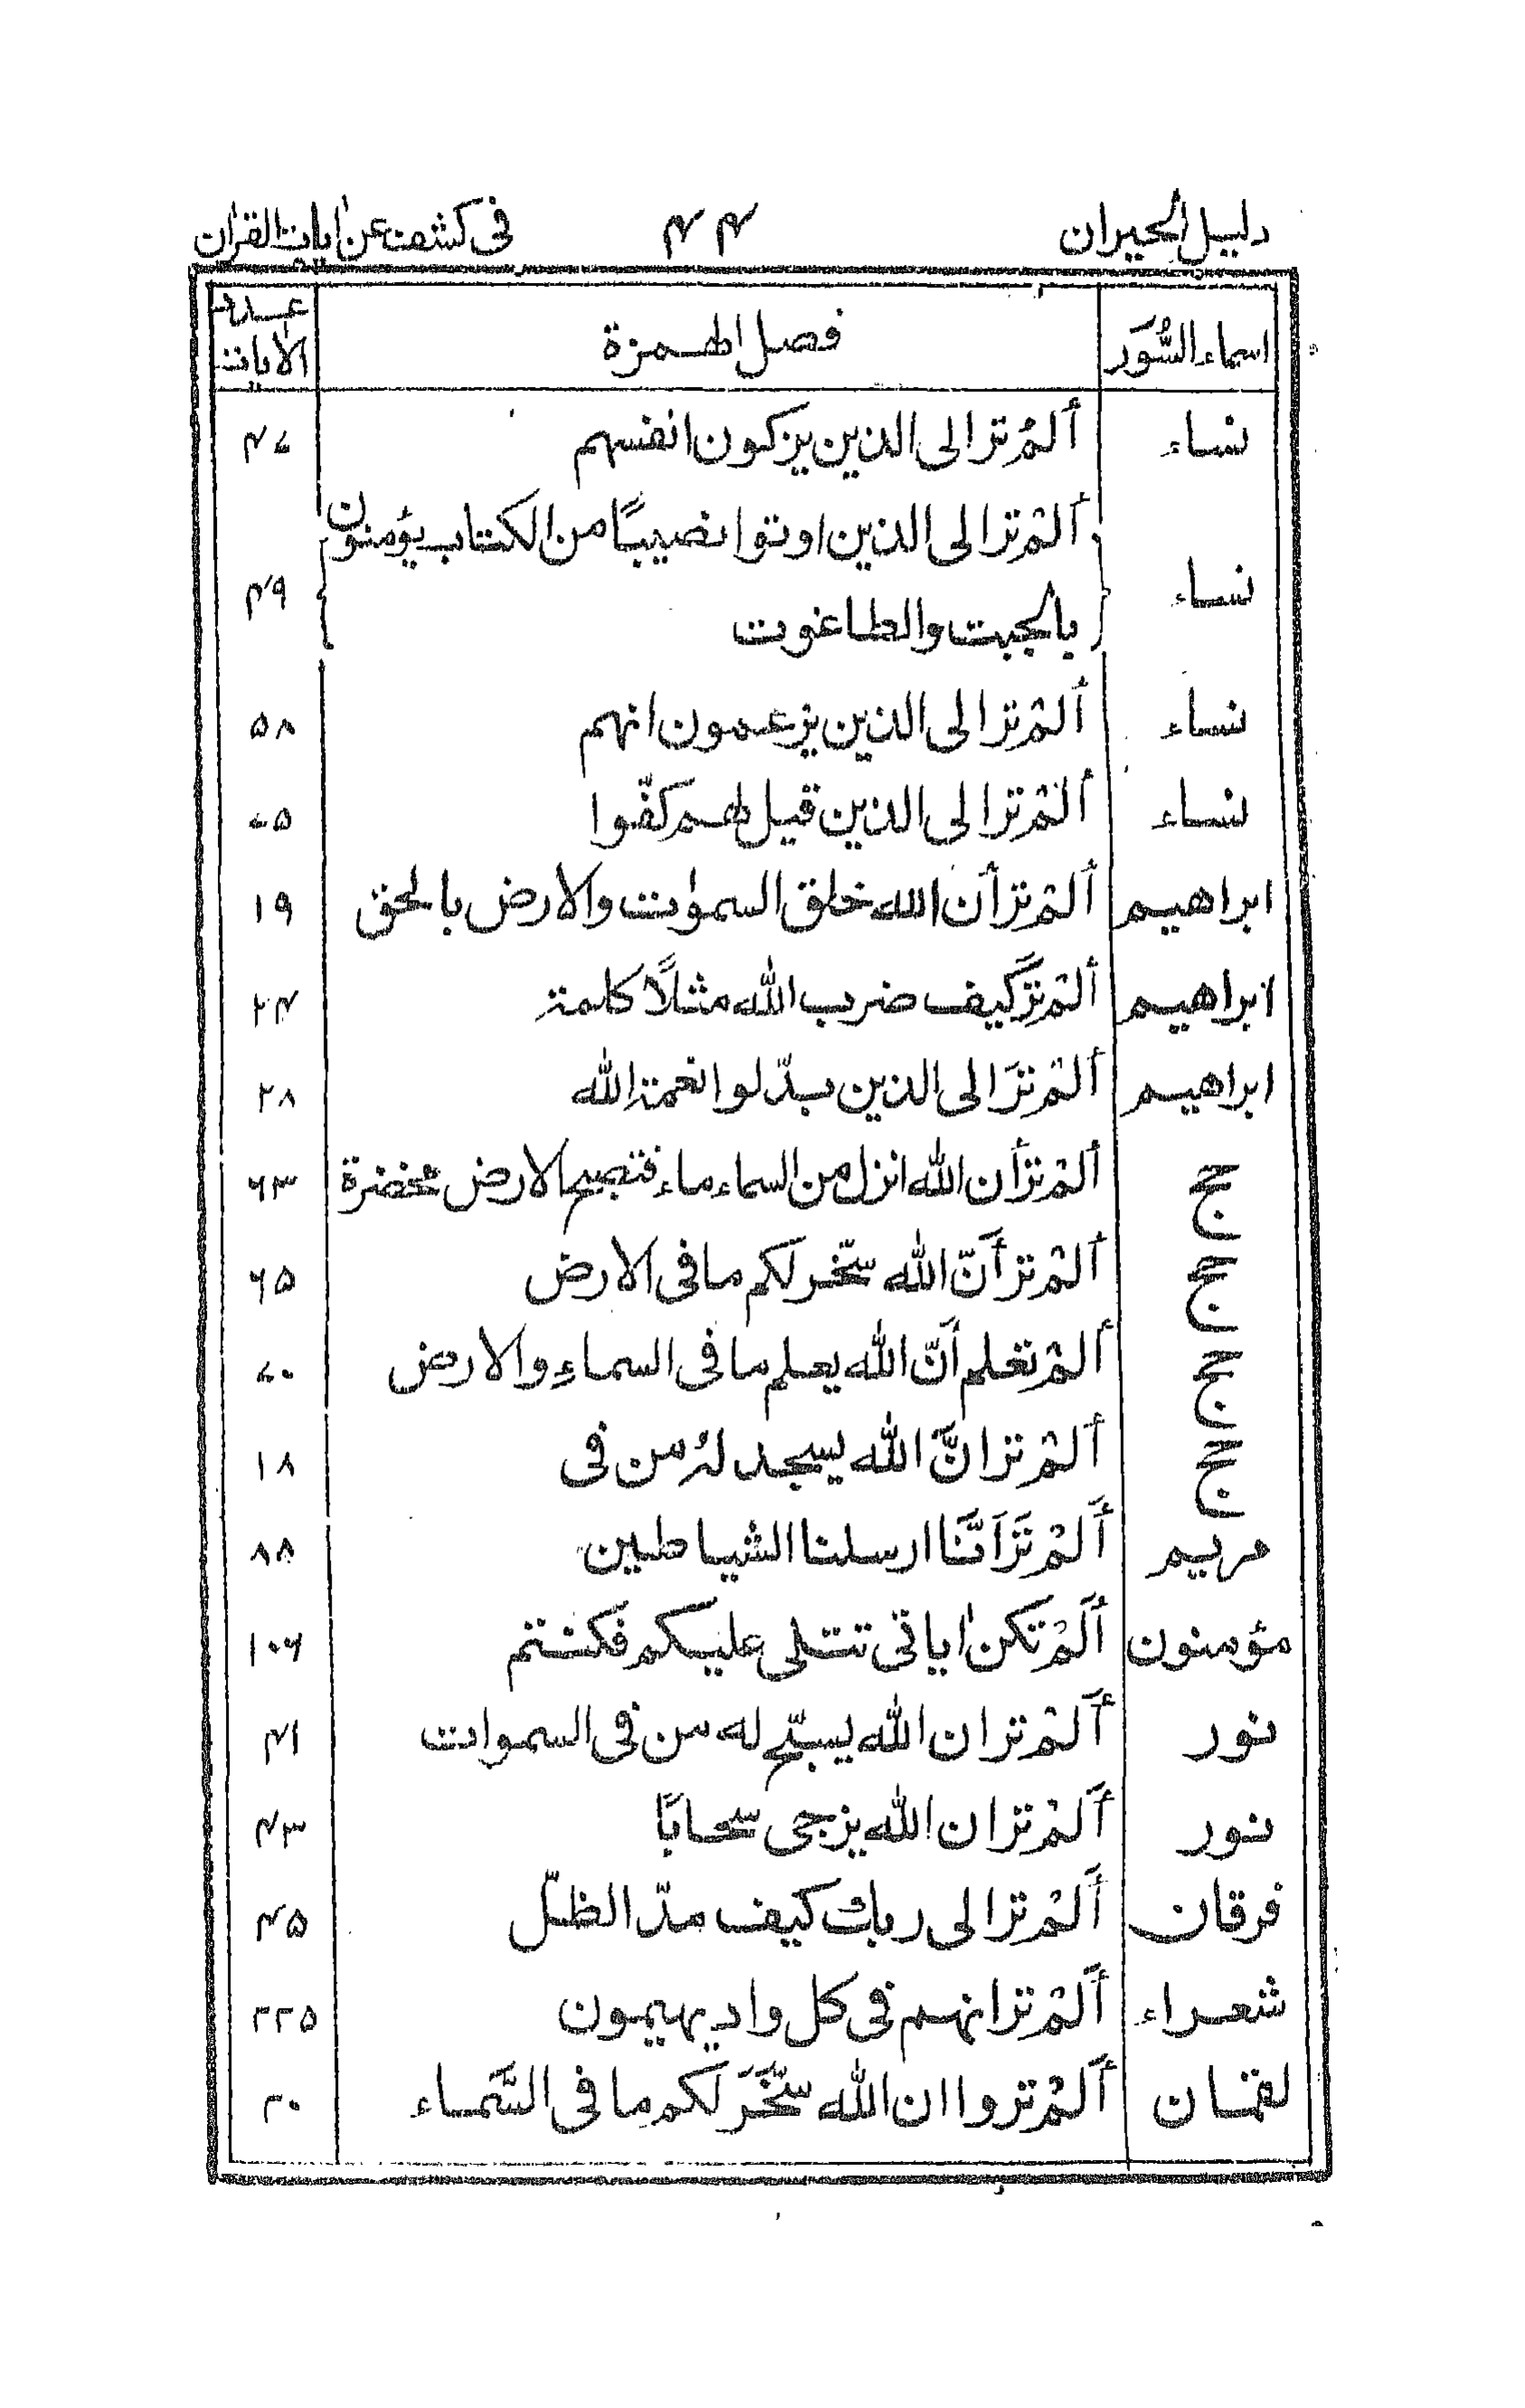 دليل الحيران ۴۴ فى كشف عن اٰيات القراٰن
اسماء السُّوَر فصل الهمزة عدد الاٰيات
نساء ألمْ تر الى الذين يزكون انفسهم ۴۷
نساء ألمْ تر الى الذين اوتوا نصيبًا من الكتاب يؤمنون ۴۹
بالجبت والطاغوت
نساء ألمْ تر الى الذين يزعمون انهم ۵۸
نساء ألمْ تر الى الذين قيل لهم كفّوا ۷۵
ابراهيم ألمْ تر أن الله خلق السمٰوٰت والارض بالحق ۱۹
ابراهيم ألمْ تر كيف ضرب الله مثلًا كلمة ۲۴
ابراهيم ألمْ تَرَ الى الذين بدّلوا نعمة الله ۲۸
حج ألمْ تر أن الله انزل من السماء ماء فتصبح الارض مخضرة ۶۳
حج ألمْ تر أَنّ الله سخّر لكم ما فى الارض ۶۵
حج ألمْ تعلم أنّ الله يعلم ما فى السماءِ والارض ۷۰
حج ألمْ تر انَّ الله يسجد لهٗ من فى ۱۸
مريم أَلمْ تَرَ اَنَّا ارسلنا الشياطين ۸۸
مؤمنون أَلَمْ تكن اٰياتى تتلى عليكم فكنتم ۱۰۶
نور أَلمْ تر ان الله يسبّح له من فى السموات ۴۱
نور أَلمْ تر ان الله يزجى سحابًا ۴۳
فرقان أَلمْ تر الى ربك كيف مدّ الظلّ ۴۵
شعراء أَلمْ تر انهم فى كل واد يهيمون ۲۲۵
لقمان أَلمْ تروا ان الله سَخَّرَ لكم ما فى السَّمٰاء ۲۰